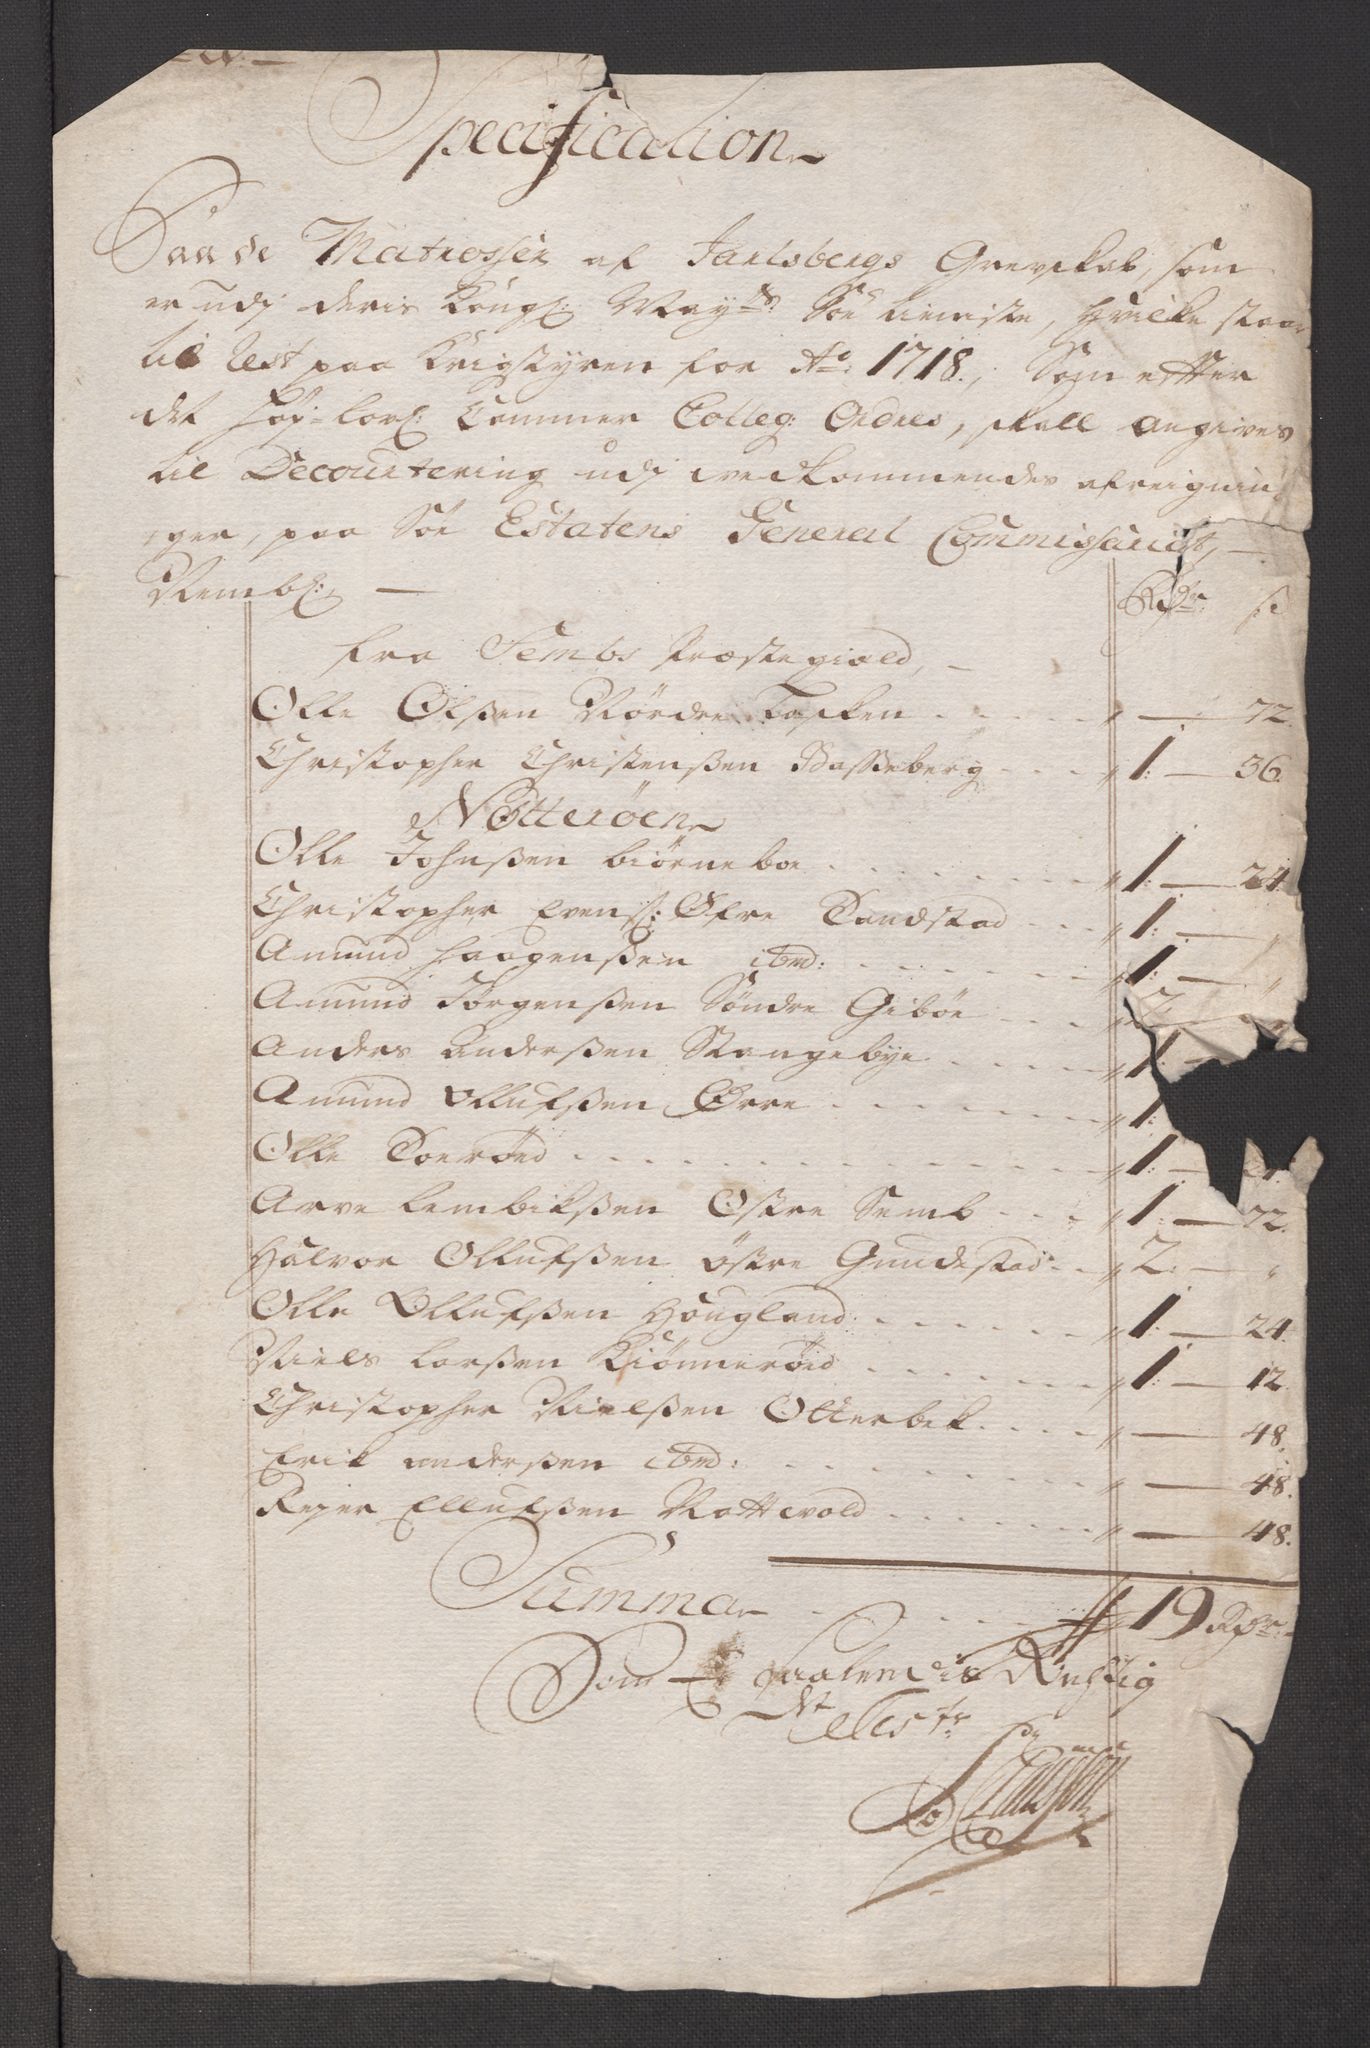 Specification
Paa de Matrosser af Jarlsbergs Grevskab, som
er udj deris Kongl: Mayts: Søe tieniste, hvilke staar
til Rest paa Krigstyren for Ao: 1718., Som efter
det Høy-Lovl: Cammer Colleg: Ordres, skall angives
til Decourtering udj vedkommendes afreignin-
ger, paa Søe Estatens General Commissariat,
Nembl:
Rdr: s
fra Sembs Præstegield,
Olle Olsen Nordre Tasken 72.
Christopher Christensen Basseberg 1: 36.
Nøtterøen
Olle Johnsen biørneboe 1: 24
Christopher Evens: Øfre Tandstad 1: "
Amund Haagensen ibid: 1: "
Amund Jørgensen Søndre Gibøe
Anders Andersen Stangebye 1:
Amund Ollufsen Ørre 1:
Olle Toerøed 1:
Arve Lembiksen Østre Semb 1: 72.
Halvor Ollufsen østre Gundestad 2: "
Olle Ollufsen Hougland 1: 24.
Niels Larsen Kiønnerøed 1: 12
Christopher Nielsen Otterbek 48.
Erik Andersen ibid: 48.
Rejer Ellufsen Nattevold 48.
Summa 19 Rdr:
Som Saaledis Rigtig